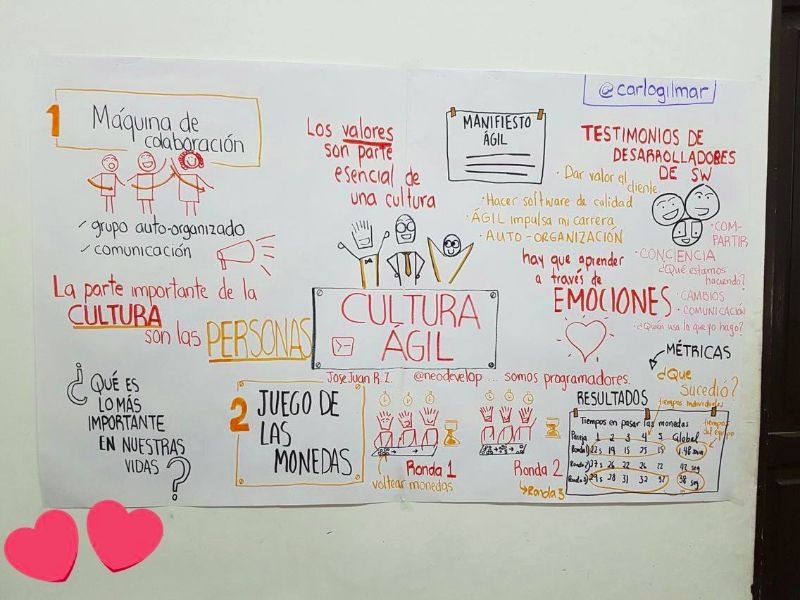 @carlogilmar
1
Máquina de
colaboración
✓ grupo auto-organizado
✓ comunicación
La parte importante de la
CULTURA
son las PERSONAS
¿QUÉ ES
LO MÁS
IMPORTANTE
EN NUESTRAS
VIDAS?
Los valores
son parte
esencial de
una cultura
CULTURA
ÁGIL
Jose Juan R. Z. @neodevelop ... somos programadores.
2
JUEGO DE
LAS
MONEDAS
voltear monedas
Ronda 1
Ronda 2
Ronda 3
MANIFIESTO
ÁGIL
TESTIMONIOS DE
DESARROLLADORES
DE SW
· Dar valor al cliente
· Hacer software de calidad
· ÁGIL impulsa mi carrera
· AUTO-ORGANIZACIÓN
· COMPARTIR
· CONCIENCIA
¿Qué estamos
haciendo?
· CAMBIOS
· COMUNICACIÓN
· ¿Quién usa lo que yo hago?
hay que aprender
a través de
EMOCIONES
MÉTRICAS
¿Que
Sucedió?
RESULTADOS
tiempos individuales
tiempos
del equipo
Tiempos en pasar las monedas
Pareja 1 2 3 4 5 Global
Ronda 1 22s 19 15 25 15
Ronda 2 37s 26 22 26 22 42 seg
Ronda 3 28 31 32 38 seg